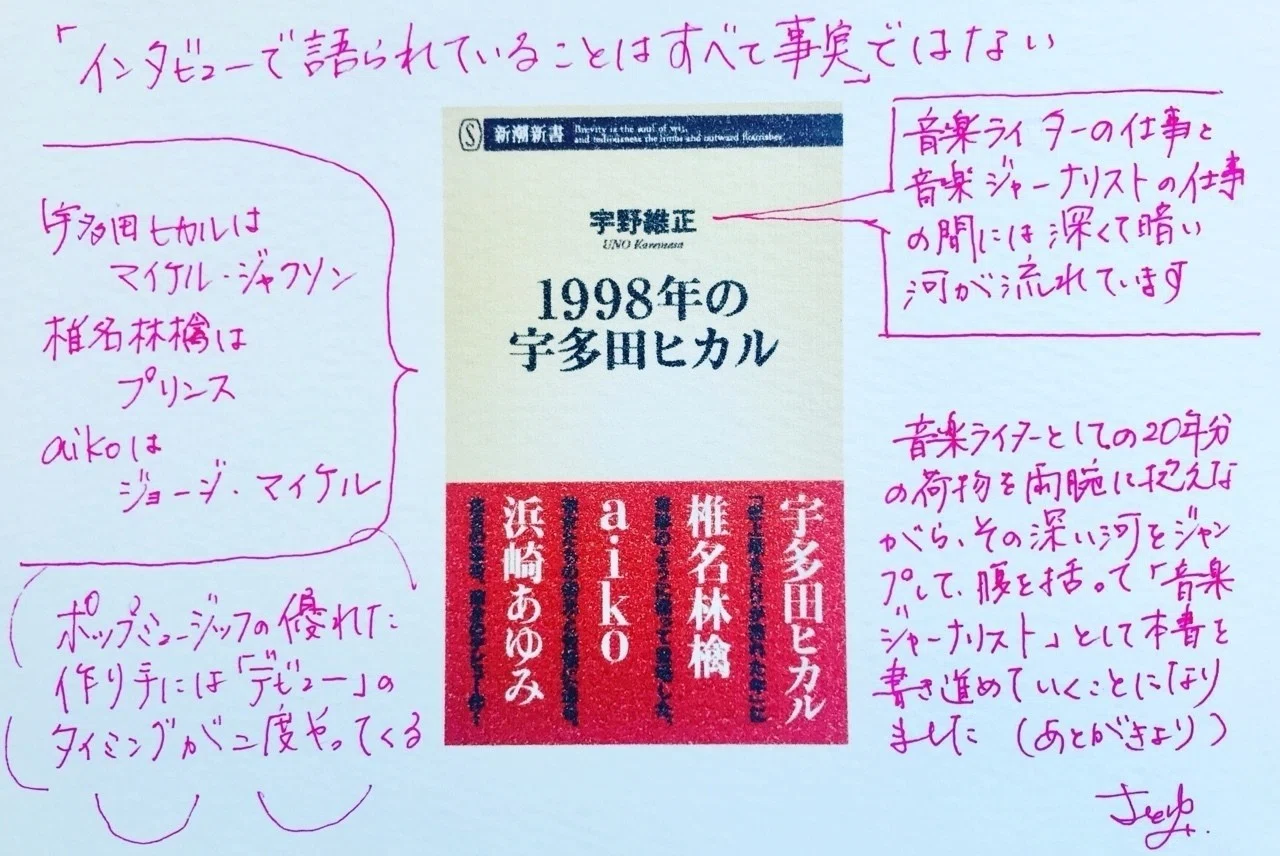 「インタビューで語られていることはすべて事実」ではない
宇多田ヒカルは
マイケル・ジャクソン
椎名林檎は
プリンス
aikoは
ジョージ・マイケル
ポップミュージックの優れた
作り手には「デビュー」の
タイミングが二度やってくる
S 新潮新書
Brevity is the soul of wit,
and tediousness the limbs and outward flourishes
宇野維正
UNO Koremasa
1998年の
宇多田ヒカル
宇多田ヒカル
椎名林檎
aiko
浜崎あゆみ
音楽ライターの仕事と
音楽ジャーナリストの仕事
の間には深くて暗い
河が流れています
音楽ライターとしての20年分
の荷物を両腕に抱えな
がら、その深い河をジャン
プして、腹を括って「音楽
ジャーナリスト」として本書を
書き進めていくことになり
ました(あとがきより)